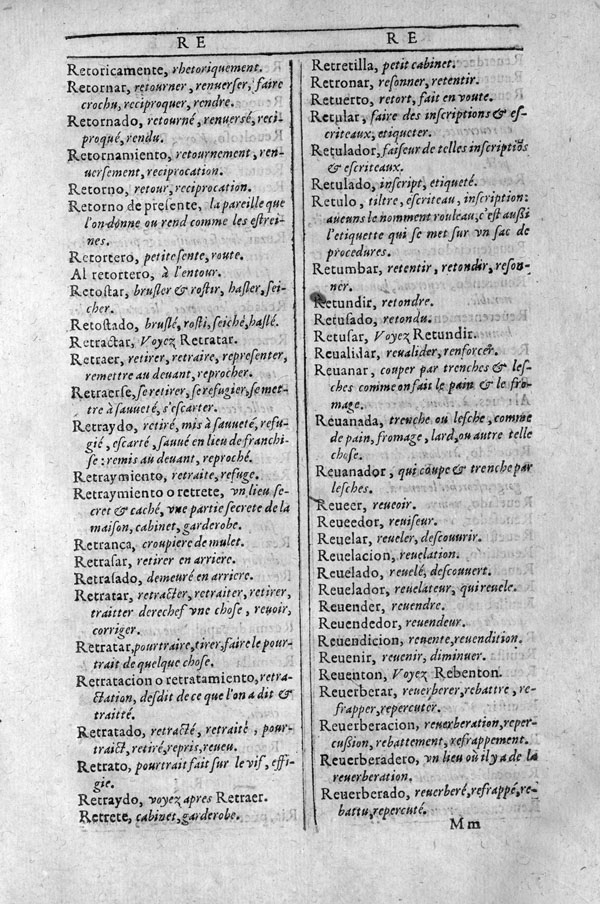 R E
Retoricamente, rhetoriquement.
Retornar, retourner, renuerser, faire
crochu, reciproquer, rendre.
Retornado, retourné, renuersé, reci-
proqué, rendu.
Retornamiento, retournement, ren-
uersement, reciprocation.
Retorno, retour, reciprocation.
Retorno de presente, la pareille que
l'on donne ou rend comme les estrei-
nes.
Retortero, petite sente, route.
Al retortero, à l'entour.
Retostar, brusler & rostir, hasler, sei-
cher.
Retostado, bruslé, rosti, seiché, haslé.
Retractar, Voyez Retratar.
Retraer, retirer, retraire, representer,
remettre au deuant, reprocher.
Retraerse, se retirer, se refugier, se met-
tre à sauueté, s'escarter.
Retraydo, retiré, mis à sauueté, refu-
gié, escarté, sauué en lieu de franchi-
se: remis au deuant, reproché.
Retraymiento, retraite, refuge.
Retraymiento o retrete, vn lieu se-
cret & caché, vne partie secrete de la
maison, cabinet, garderobe.
Retranca, croupiere de mulet.
Retrasar, retirer en arriere.
Retrasado, demeuré en arriere.
Retratar, retracter, retraiter, retirer,
traitter derechef vne chose, reuoir,
corriger.
Retratar, pourtraire, tirer, faire le pour-
trait de quelque chose.
Retratacion o retratamiento, retra-
ctation, desdit de ce que l'on a dit &
traitté.
Retratado, retracté, retraité, pour-
traict, retiré, repris, reueu.
Retrato, pourtrait fait sur le vif, effi-
gie.
Retraydo, voyez apres Retraer.
Retrete, cabinet, garderobe.
R E
Retretilla, petit cabinet.
Retronar, resonner, retentir.
Retuerto, retort, fait en voute.
Retular, faire des inscriptions & es-
criteaux, etiqueter.
Retulador, faiseur de telles inscriptiõs
& escriteaux.
Retulado, inscript, etiqueté.
Retulo, tiltre, escriteau, inscription:
aucuns le nomment rouleau, c'est aussi
l'etiquette qui se met sur vn sac de
procedures.
Retumbar, retentir, retondir, reson-
ner.
Retundir, retondre.
Retusado, retondu.
Retusar, Voyez Retundir.
Reualidar, reualider, renforcer.
Reuanar, couper par trenches & les-
ches comme on fait le pain & le fro-
mage.
Reuanada, trenche ou lesche, comme
de pain, fromage, lard, ou autre telle
chose.
Reuanador, qui coupe & trenche par
lesches.
Reueer, reueoir.
Reueedor, reuiseur.
Reuelar, reueler, descouurir.
Reuelacion, reuelation.
Reuelado, reuelé, descouuert.
Reuelador, reuelateur, qui reuele.
Reuender, reuendre.
Reuendedor, reuendeur.
Reuendicion, reuente, reuendition.
Reuenir, reuenir, diminuer.
Reuenton, Voyez Rebenton.
Reuerberar, reuerberer, rebattre, re-
frapper, repercuter.
Reuerberacion, reuerberation, reper-
cußion, rebattement, refrappement.
Reuerberadero, vn lieu où il y a de la
reuerberation.
Reuerberado, reuerberé, refrappé, re-
battu, repercuté.
Mm